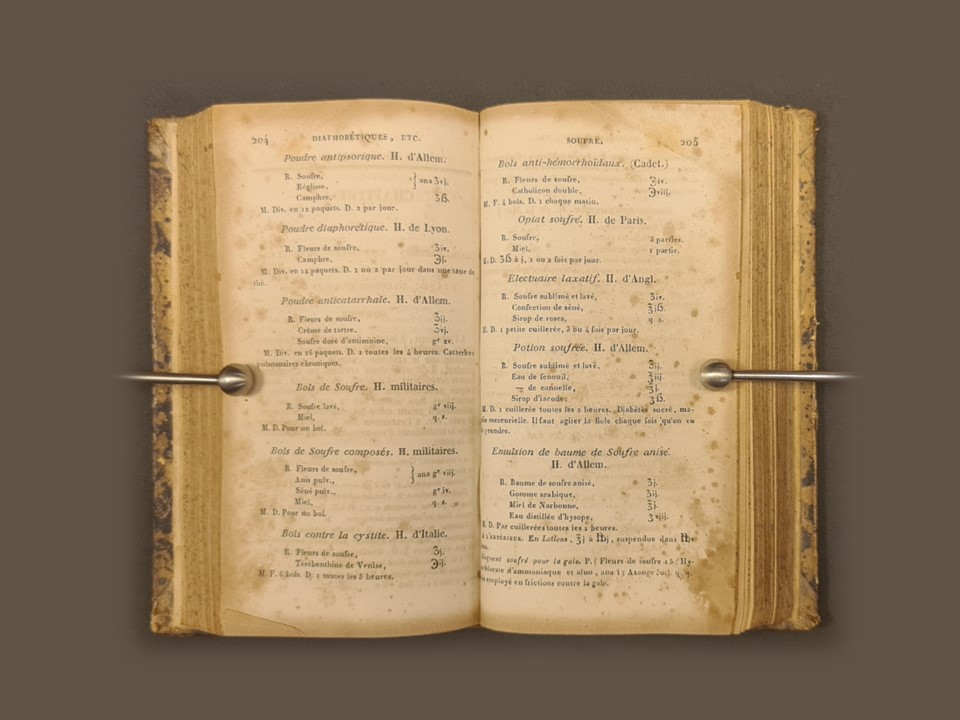 204 DIAPHORÉTIQUES, ETC.
Poudre antipsorique. H. d'Allem.
R. Soufre,
Réglisse, } ana ʒvj.
Camphre, ʒß.
M. Div. en 12 paquets. D. 2 par jour.
Poudre diaphorétique. H. de Lyon.
R. Fleurs de soufre, ʒiv.
Camphre, ℈j.
M. Div. en 12 paquets. D. 1 ou 2 par jour dans une tasse de
thé.
Poudre anticatarrhale. H. d'Allem.
R. Fleurs de soufre, ʒij.
Crême de tartre, ʒvj.
Soufre doré d'antimoine, gr xv.
M. Div. en 16 paquets. D. 1 toutes les 4 heures. Catarrhes
pulmonaires chroniques.
Bols de Soufre. H. militaires.
R. Soufre lavé, gr viij.
Miel, q. s.
M. D. Pour un bol.
Bols de Soufre composés. H. militaires.
R. Fleurs de soufre,
Anis pulv., } ana gr viij.
Séné pulv., gr jv.
Miel, q. s.
M. D. Pour un bol.
Bols contre la cystite. H. d'Italie.
R. Fleurs de soufre, ʒj.
Térébenthine de Venise, ℈ij.
M. F. 6 bols. D. 1 toutes les 5 heures.
SOUFRE. 205
Bols anti-hémorrhoïdaux. (Cadet.)
R. Fleurs de soufre, ℈iv.
Catholicon double, ℈viij.
M. F. 4 bols. D. 1 chaque matin.
Opiat soufré. H. de Paris.
R. Soufre, 2 parties.
Miel, 1 partie.
D. ʒß à j, 1 ou 2 fois par jour.
Electuaire laxatif. H. d'Angl.
R. Soufre sublimé et lavé, ʒiv.
Confection de séné, ʒjß.
Sirop de roses, q s.
D. 1 petite cuillerée, 3 ou 4 fois par jour.
Potion soufrée. H. d'Allem.
R. Soufre sublimé et lavé, ʒij.
Eau de fenouil, ℥iij.
— de cannelle, ℥j.
Sirop d'iacode, ℥ß.
M. D. 1 cuillerée toutes les 2 heures. Diabètes sucré, ma-
mercurielle. Il faut agiter la fiole chaque fois qu'on en
prendre.
Emulsion de baume de Soufre anisé.
H. d'Allem.
R. Baume de soufre anisé, ʒj.
Gomme arabique, ʒij.
Miel de Narbonne, ℥j.
Eau distillée d'hysope, ℥viij.
D. Par cuillerées toutes les 2 heures.
A L'EXTÉRIEUR. En Lotions, ℥j à ℔j, suspendue dans ℔
soufré pour la gale. P. (Fleurs de soufre 15; Hy-
d'ammoniaque et alun, ana 1; Axonge
employé en frictions contre la gale.